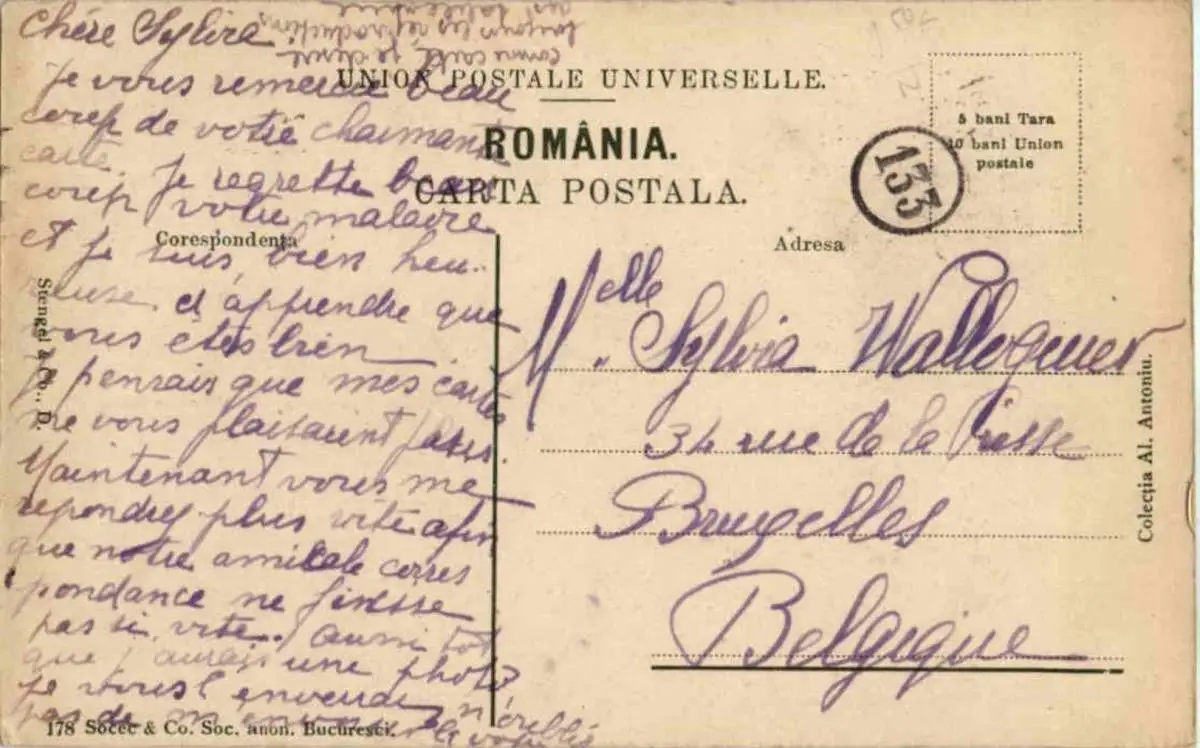 Chère Sylvia.
Je vous remercie beau
coup de votre charmante
carte. Je regrette beau
coup votre maladie
et je suis bien heu-
reuse d'apprendre que
vous êtes bien
Je pensais que mes cartes
ne vous plaisaient pas.
Maintenant vous me
repondrez plus vite afin
que notre amicale corres
pondance ne finisse
pas si vite. Aussi tot
que j'aurais une photo
je vous l'enverrai n'oubliez
pas de m'envoyer la votre
comme carte je désire
toujours les réproductions
des
UNION POSTALE UNIVERSELLE.
ROMÂNIA.
CARTA POSTALA.
5 bani Tara
10 bani Union
postale
133
Corespondența
Adresa
Melle. Sylvia
34 rue de la
Bruxelles
Belgique
Stengel & Co., D.
Colecția Al. Antoniu.
178 Socec & Co. Soc. anon. Bucuresci.